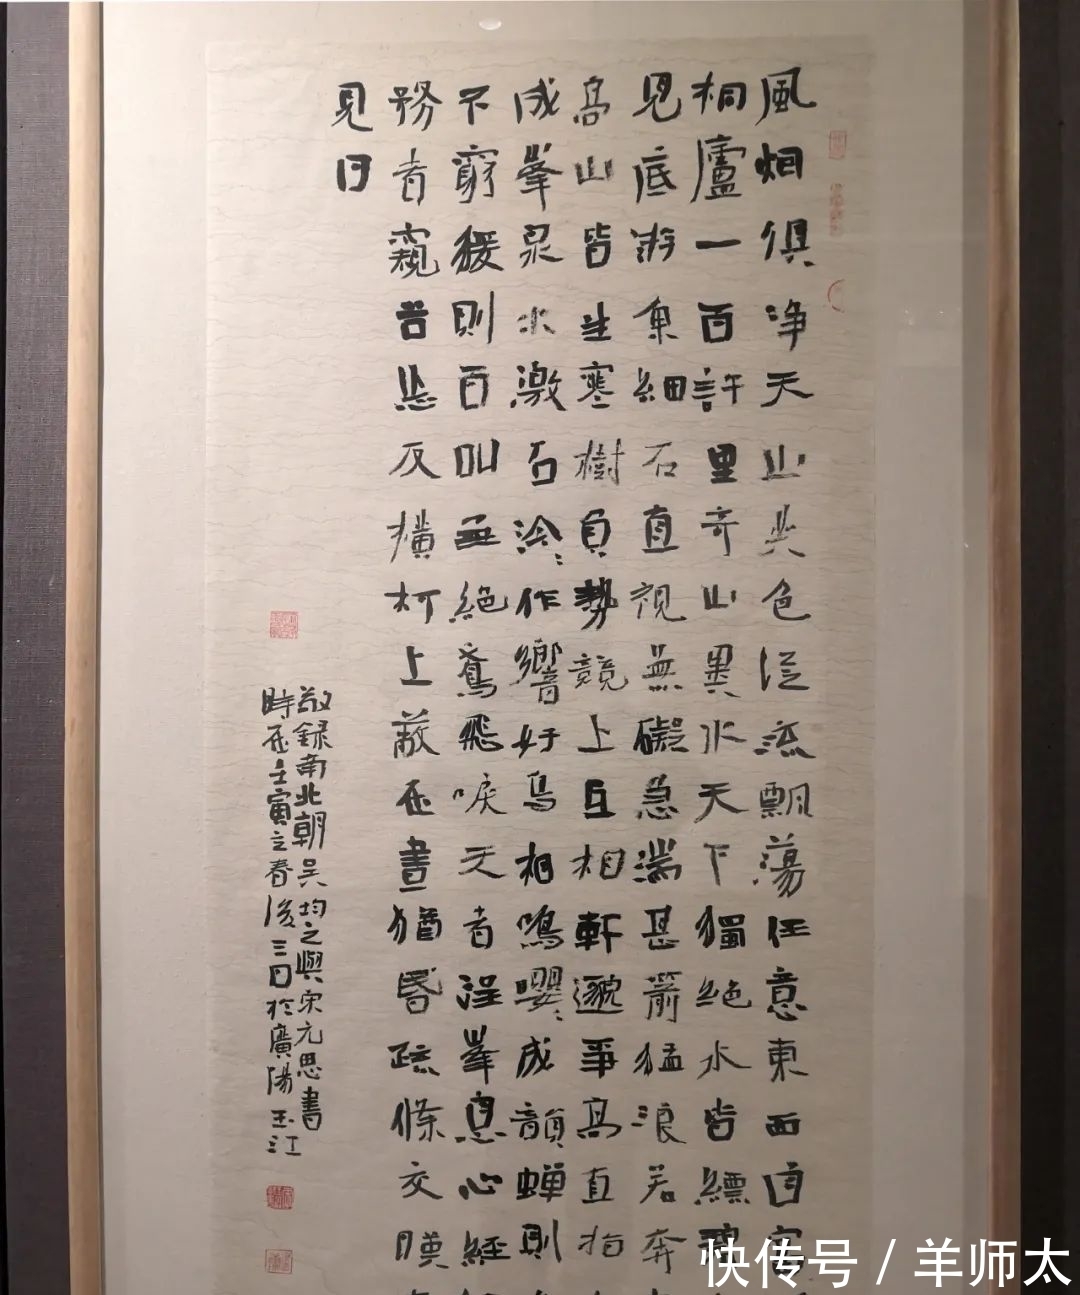 風烟俱淨天山共色從流飄蕩任意東西自富
桐廬一百許里奇山異水天下獨絕水皆縹碧
見底游魚細石直視無礙急湍甚箭猛浪若奔
高山皆生寒樹負勢競上互相軒邈爭高直指
成峯泉水激石泠〻作響好鳥相鳴嚶〻成韻蟬則
不窮猨則百叫無絕鳶飛唳天者望峯息心經
務者窺谷忘反橫柯上蔽在晝猶昏疏條交暎
見日
敬録南北朝吳均之與宋元思書
時在壬寅之春後三日於廣陽玉江
快传号 / 羊师太